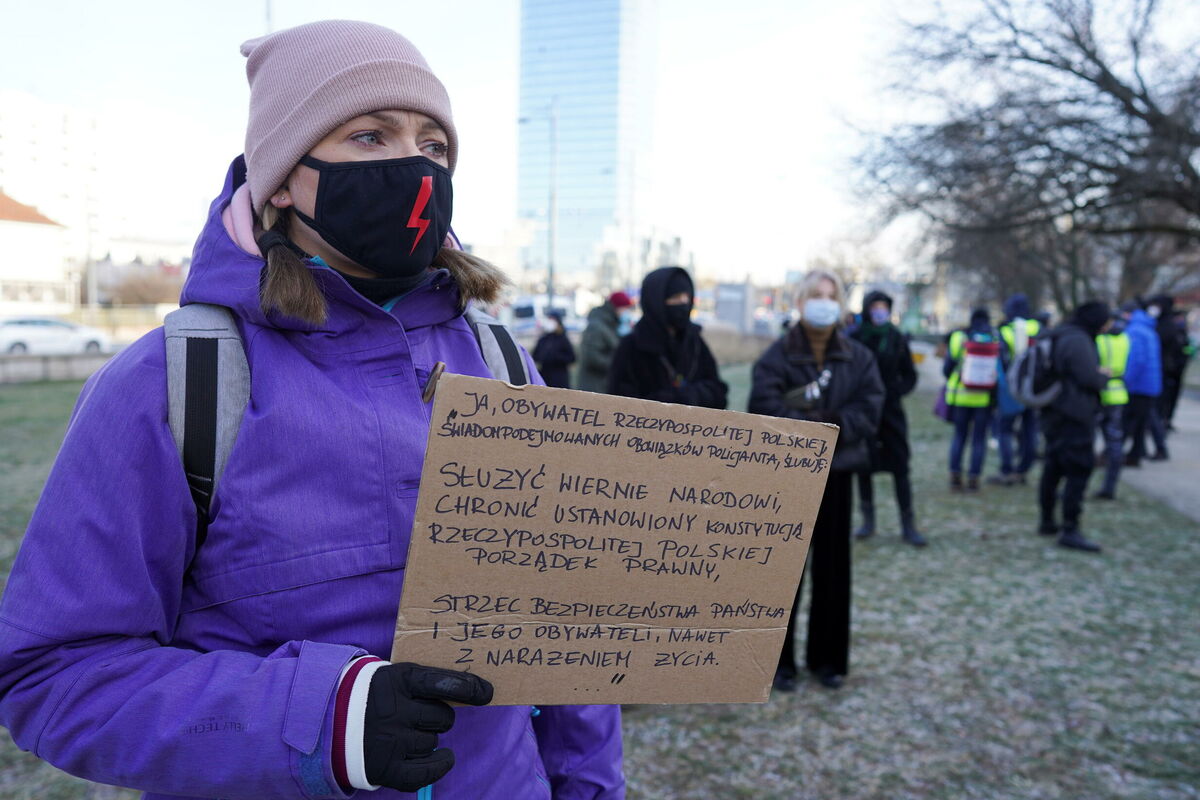 "JA, OBYWATEL RZECZYPOSPOLITEJ POLSKIEJ,
ŚWIADOM PODEJMOWANYCH OBOWIĄZKÓW POLICJANTA, ŚLUBUJĘ:
SŁUŻYĆ WIERNIE NARODOWI,
CHRONIĆ USTANOWIONY KONSTYTUCJĄ
RZECZYPOSPOLITEJ POLSKIEJ
PORZĄDEK PRAWNY,
STRZEC BEZPIECZEŃSTWA PAŃSTWA
I JEGO OBYWATELI, NAWET
Z NARAŻENIEM ŻYCIA.
..."
HELLY TECH